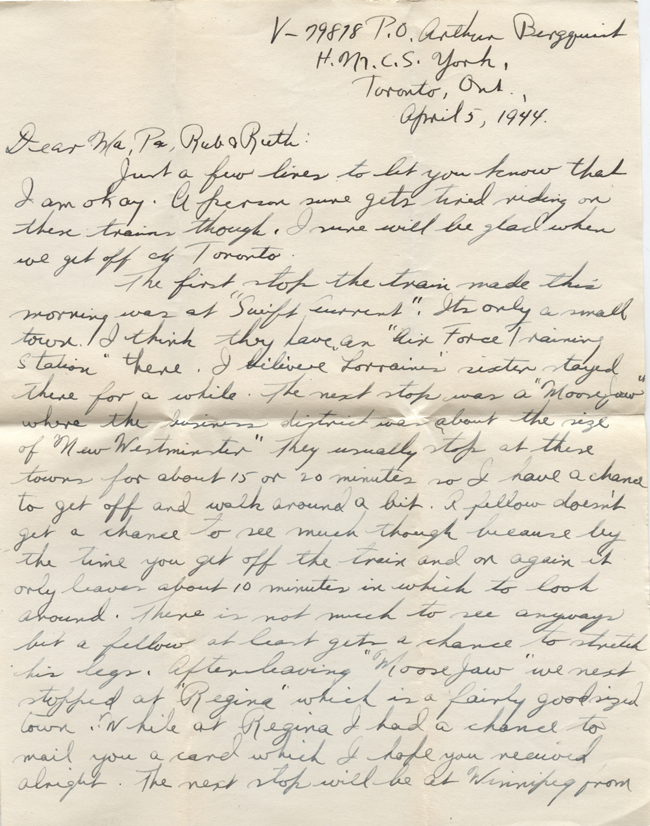 V-79878 P.O. Arthur Bergquist
H.M.C.S. York,
Toronto, Ont.,
April 5, 1944.
Dear Ma, Pa, Rub & Ruth:
Just a few lines to let you know that
I am okay. A person sure gets tired riding on
these trains though. I sure will be glad when
we get off at Toronto.
The first stop the train made this
morning was at "Swift Current". Its only a small
town. I think they have an "Air Force Training
Station" there. I believe Lorraine's sister stayed
there for a while. The next stop was a "Moose Jaw"
where the business district was about the size
of "New Westminster" They usually stop at these
towns for about 15 or 20 minutes so I have a chance
to get off and walk around a bit. A fellow doesn't
get a chance to see much though because by
the time you get off the train and on again it
only leaves about 10 minutes in which to look
around. There is not much to see anyways
but a fellow at least gets a chance to stretch
his legs. After leaving "Moose Jaw" we next
stopped at "Regina" which is a fairly good sized
town. While at Regina I had a chance to
mail you a card which I hope you received
alright. The next stop will be at Winnipeg from